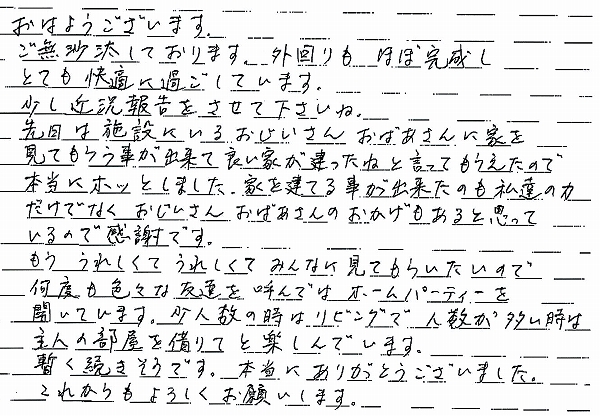 おはようございます。
ご無沙汰しております。外回りも ほぼ完成し
とても快適に過ごしています。
少し近況報告をさせて下さいね。
先日は施設にいるおじいさん おばあさんに家を
見てもらう事が出来て良い家が建ったねと言ってもらえたので
本当にホッとしました。家を建てる事が出来たのも私達の力
だけでなく おじいさん おばあさんのおかげもあると思って
いるので感謝です。
もう うれしくて うれしくて みんなに見てもらいたいので
何度も色々な友達を呼んでは ホームパーティーを
開いています。少人数の時はリビングで 人数が多い時は
主人の部屋を借りてと楽しんでいます。
暫く続きそうです。本当にありがとうございました。
これからもよろしくお願いします。